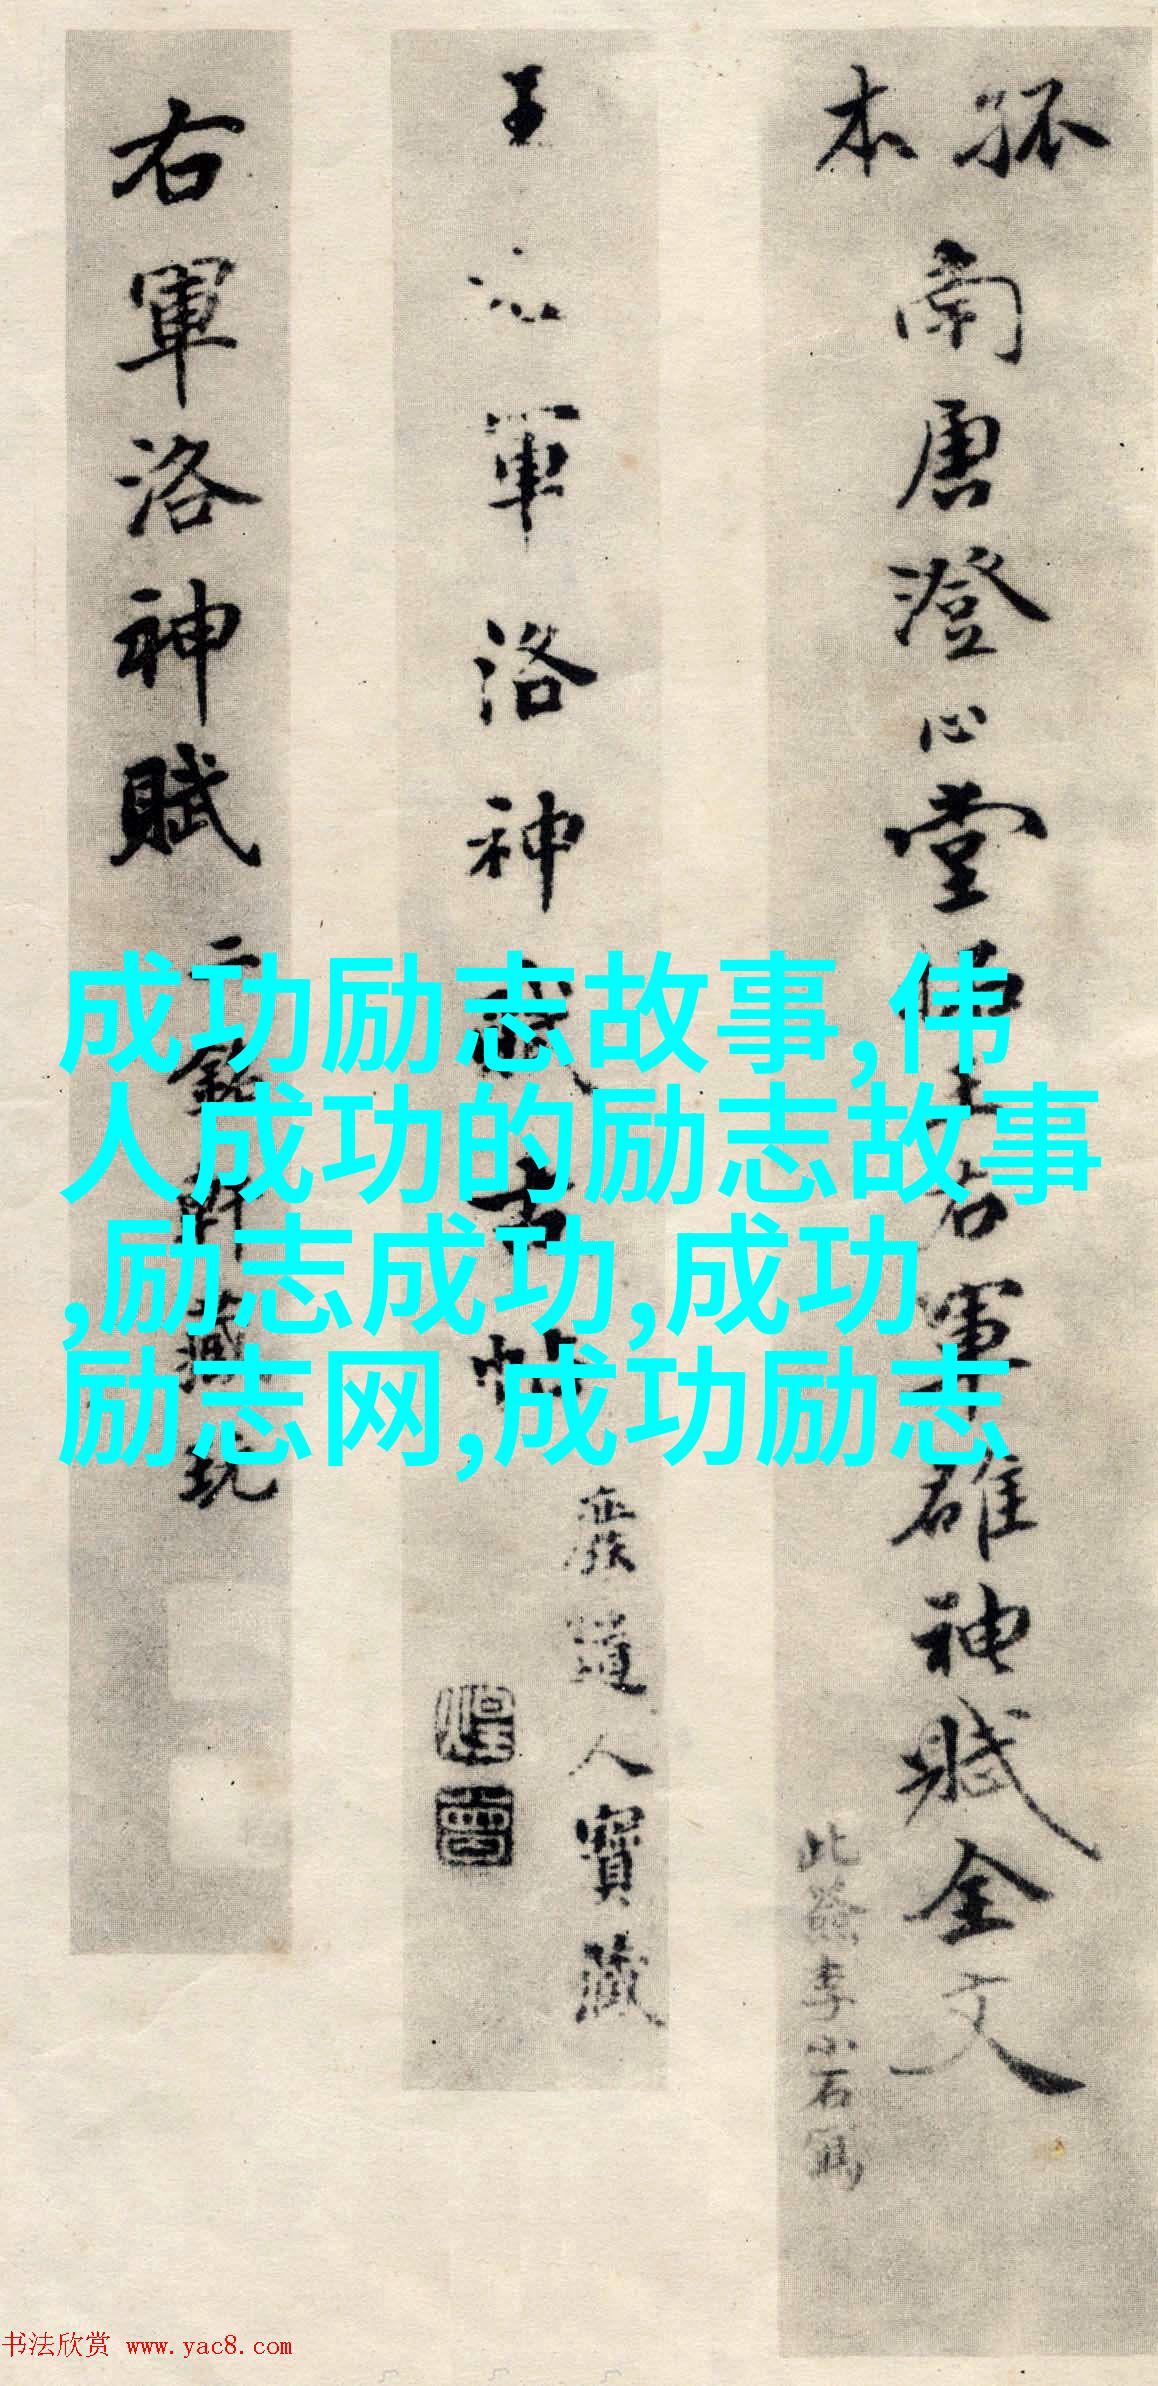 孤本
南唐澄心堂
右軍雒神賦全文
此簽李小石寫
王
軍洛神賦古帖
道人寶藏
右軍洛神賦
二銘軒藏玩
成功励志故事,伟
人成功的励志故事
,励志成功,成功
励志网,成功励志
书法欣赏 www.yac8.com